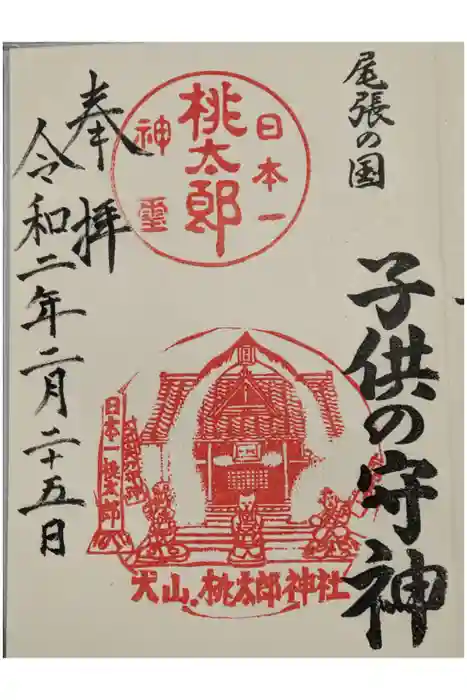 尾張の国
子供の守神
日本一
桃太郎
神霊
奉拝
令和二年二月二十五日
日本一桃太郎
犬山・桃太郎神社